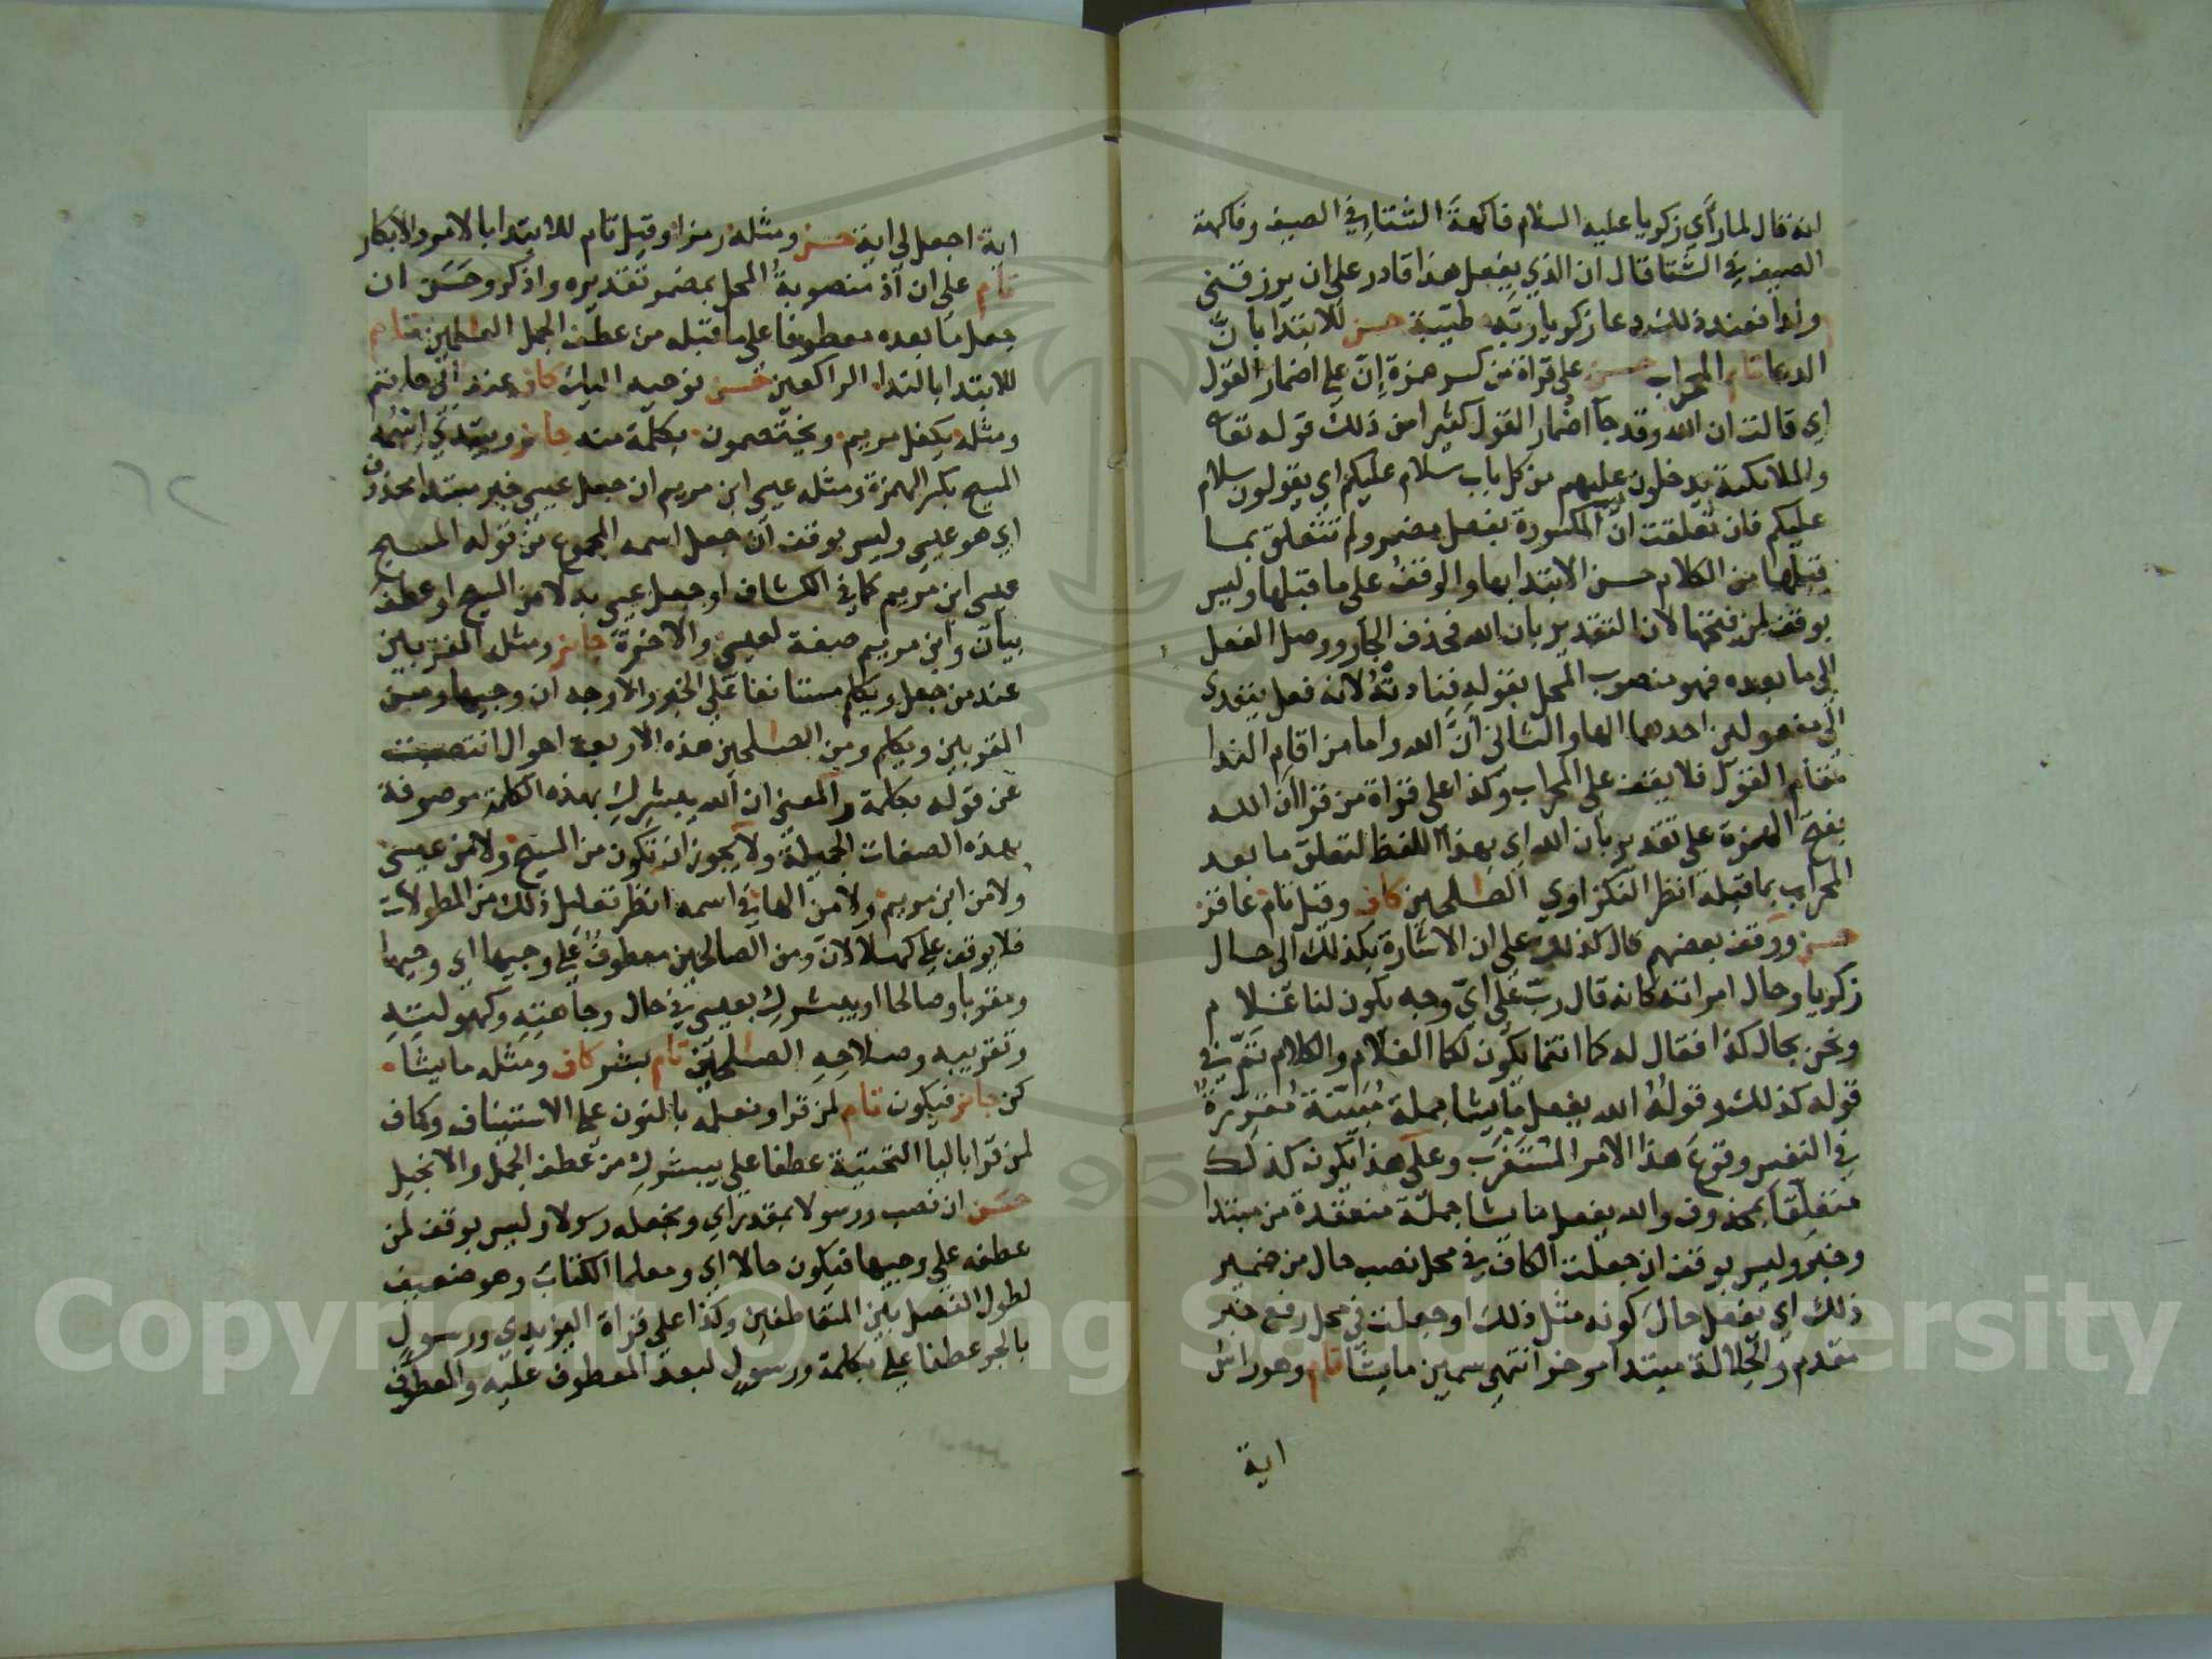 انه قال لما رأي زكريا عليه السلام فاكهةَ الشتا في الصيف وفاكهة
الصيف في الشتا قال ان الذي يفعل هذا قادر على ان يرزقني
ولدا فعند ذلك دعا زكريا ربَّه طيّبة حسن للابتدا بانّ
الدعا تام المحراب حسن على قراة من كسر همزة إنّ على اضمار القول
اي قالت ان الله وقد جآ اضمار القول كثيرا من ذلك قوله تعا
والملائكة يدخلون عليهم من كل باب سلام عليكم اي يقولون سلام
عليكم فان تعلقت انّ المكسورة بفعل مضمر ولم تتعلق بما
قبلها من الكلام حسن الابتدا بها والوقف على ما قبلها وليس
بوقف لمن فتحها لان التقدير بان الله فحذف الجار ووصل الفعل
الى ما بعده فهو منصوب المحل بقوله فنادتهُ لانه فعل يتعدى
الى مفعولين احدهما الها والثاني انّ الله واما من اقام الندا
مقام القول فلا يقف على المحراب وكذا على قراة من قرا ان الله
بفتح الهمزة على تقدير بان الله اي بهذا اللفظ لتعلق ما بعد
المحراب بما قبله انظر النكزاوي الصلحين كاف وقيل تام عاقر
حسن ووقف بعضهم كال كذلك على ان الاشارة بكذلك الى حال
زكريا وحال امراته كانه قال ربّ على ايّ وجه يكون لنا غلام
ونحن بحال كذا فقال له كما انتما يكون لكما الغلام والكلام تمّ في
قوله كذلك وقولهُ الله يفعل ما يشا جملة مُبيّنة مُقرّرة
في النفس وقوعَ هذا الامر المستغرب وعلى هذا يكون كذلك
متعلقا بمحذوف والله يفعل ما يشا جملة منعقدة من مبتدا
وخبر وليس بوقف ان جعلت الكاف في محل نصب حال من ضمير
ذلك اي يفعل حال كونه مثل ذلك او جعلت في محل رفع خبر
مقدم والجلالة مبتدا موخر انتهى سمين ما يشا تام وهو راس
اية
اية اجعل لى اية حسن ومثله رمزا وقيل تام للابتدا بالامر والابكار
تام على ان اذ منصوبة المحل بمضمر تقديره واذكر وحَسَن ان
جعل ما بعده معطوفا على ما قبله من عطف الجمل العلمين تام
للابتدا بالندا الراكعين حسن نوحيه اليك كاف عند ابي حاتم
ومثله يكفل مريم ويختصمون بكلمة منه جايز ويبتدي اسمه
المسيح بكسر الهمزة ومثله عيسى ابن مريم ان جعل عيسى خبر مبتدا محذوف
اي هو عيسى وليس بوقف ان جعل اسمه المجموع من قوله المسيح
عيسى ابن مريم كما في الكشاف او جعل عيسى بدلا من المسيح او عطف
بيان وابن مريم صفة لعيسى والاخرة جايز ومثله المقربين
عند من جعل ويكلم مستانفا على الخبر والاوجه ان وجيها ومن
المقربين ويكلم ومن الصلحين هذه الاربعة احوال انتصبت
عن قوله بكلمة والمعنى ان الله يبشركِ بهذه الكلمة موصوفة
بهذه الصفات الجميلة ولا يجوز ان تكون من المسيح ولا من عيسى
ولا من ابن مريم ولا من الها في اسمه انظر تعليل ذلك من المطولات
فلا يوقف على كهلا لان ومن الصالحين معطوف على وجيها اي وجيها
ومقربا وصالحا او يبشركِ بعيسى في حال وجاهته وكهوليته
وتقريبه وصلاحه الصلحين تام بشر كاف ومثله ما يشا
كن جايز فيكون تام لمن قرا ونعلمه بالنون على الاستيناف وكاف
لمن قرا باليا التحتية عطفا على يبشركِ من عطف الجمل والانجيل
حسن ان نصب ورسولا بمقدر اي ونجعله رسولا وليس بوقف لمن
عطفه على وجيها فيكون حالا اي ومعلما الكتاب وهو ضعيف
لطول الفصل بين المتعاطفين وكذا على قراة اليزيدي ورسولٍ
بالجر عطفا على بكلمة ورسولٍ لبعد المعطوف عليه والمعطوف
Copyright © King Saud University